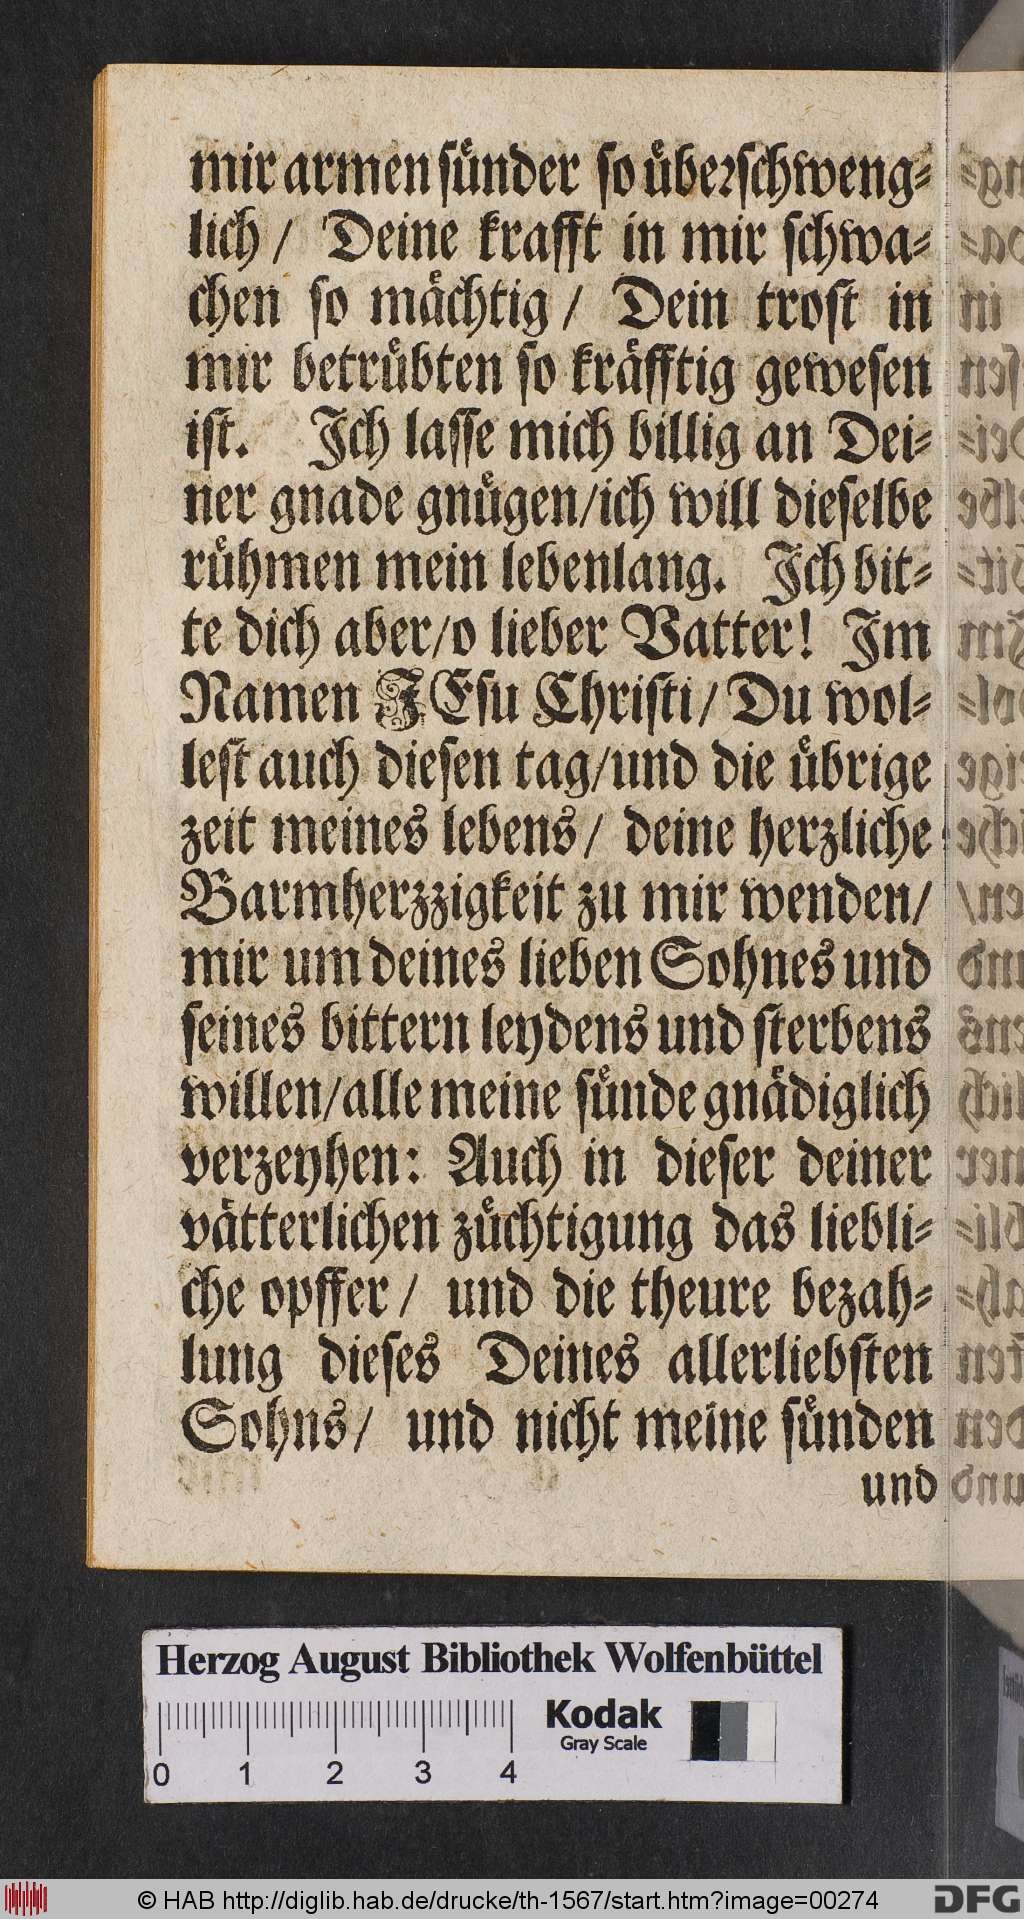 mir armen sünder so überschweng=
lich / Deine krafft in mir schwa=
chen so mächtig / Dein trost in
mir betrübten so kräfftig gewesen
ist. Ich lasse mich billig an Dei=
ner gnade gnügen/ich will dieselbe
rühmen mein lebenlang. Ich bit=
te dich aber/o lieber Vatter! Im
Namen JEsu Christi/ Du wol=
lest auch diesen tag/und die übrige
zeit meines lebens/ deine herzliche
Barmherzzigkeit zu mir wenden/
mir um deines lieben Sohnes und
seines bittern leydens und sterbens
willen/alle meine sünde gnädiglich
verzeyhen: Auch in dieser deiner
vätterlichen züchtigung das liebli=
che opffer / und die theure bezah=
lung dieses Deines allerliebsten
Sohns/ und nicht meine sünden
und
Herzog August Bibliothek Wolfenbüttel
Kodak
Gray Scale
0 1 2 3 4
© HAB http://diglib.hab.de/drucke/th-1567/start.htm?image=00274
DFG